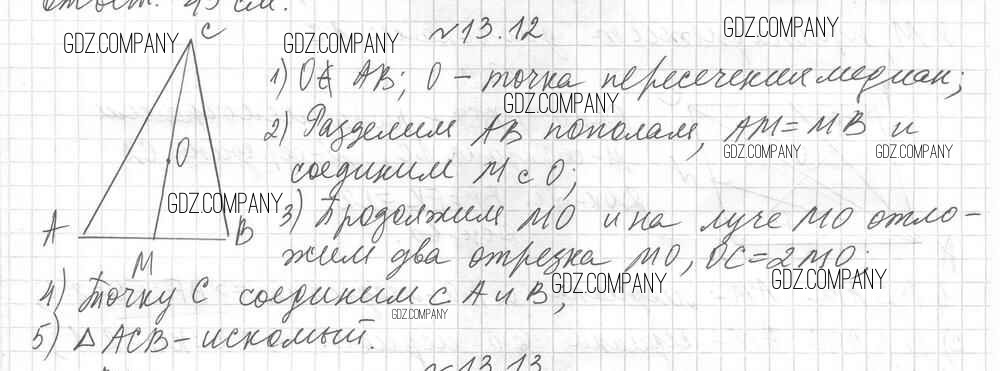 Ответ: 45 см.
GDZ.COMPANY C GDZ.COMPANY №13.12 GDZ.COMPANY
1) O∉ AB; O – точка пересечения медиан;
GDZ.COMPANY
2) Разделим AB пополам, AM=MB и
O GDZ.COMPANY GDZ.COMPANY
соединим M с O;
GDZ.COMPANY
A B 3) Продолжим MO и на луче MO отло-
M жим два отрезка MO, OC=2MO;
GDZ.COMPANY GDZ.COMPANY
4) Точку C соединим с A и B;
GDZ.COMPANY
5) △ACB – искомый.
№13.13